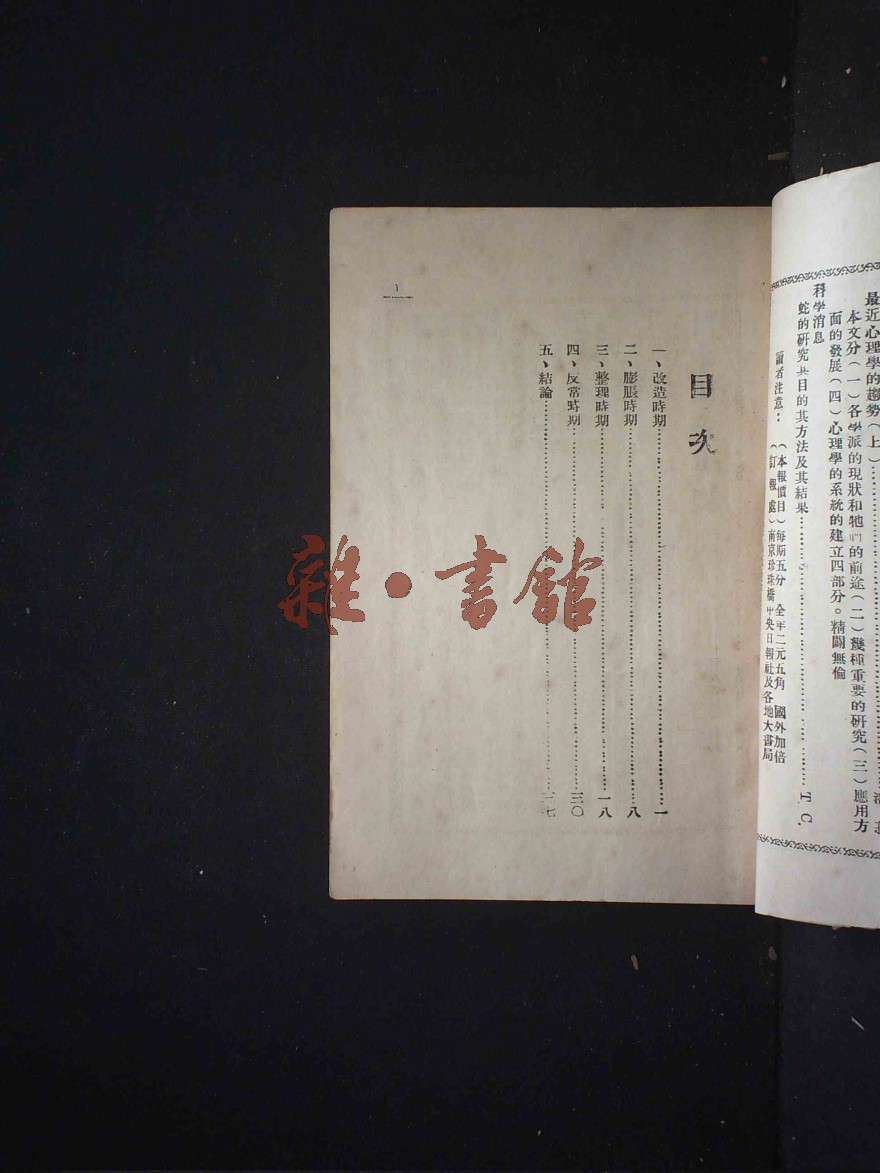 最近心理學的趨勢（上）
本文分（一）各學派的現狀和牠們的前途（二）幾種重要的研究（三）應用方
面的發展（四）心理學的系統的建立四部分。精闢無倫
科學消息
蛇的研究其目的其方法及其結果 T. C.
讀者注意：
（本報價目）每期五分 全年二元五角 國外加倍
（訂報處）南京珍珠橋中央日報社及各地大書局
目次
一、改造時期 一
二、膨脹時期 八
三、整理時期 一八
四、反常時期 三〇
五、結論 七
一
雜·書館